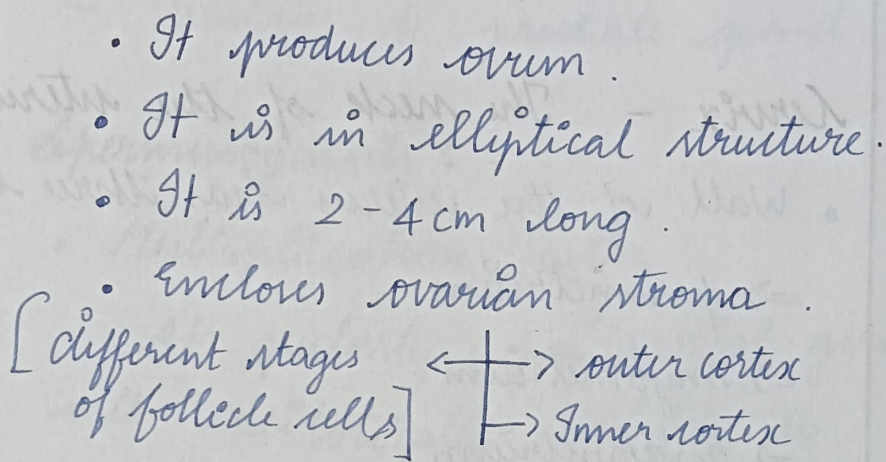 • It produces ovum.
• It is in elliptical structure.
• It is 2-4 cm long.
• Encloses ovarian stroma.
[different stages ←→ outer cortex
of follicle cells] → Inner cortex